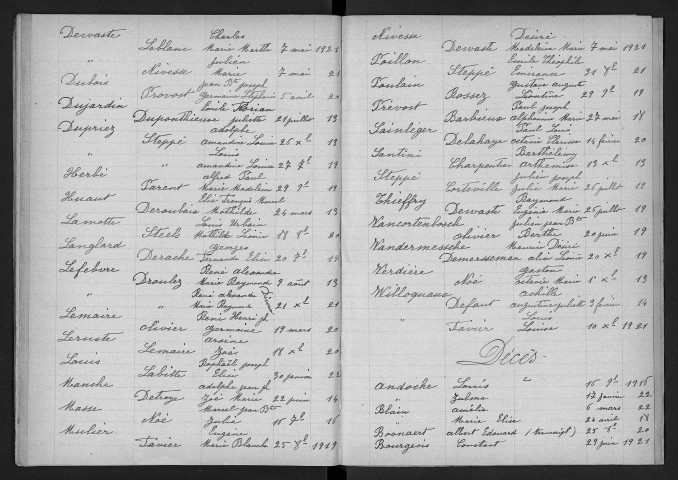 Dewaste Charles
Leblanc Marie Marthe 7 mai 1921
" Julien
Nivesse Marie 7 mai 21
Dubois Jean Bte Joseph
Provost Germaine 5 avril 20
Dujardin Emile Florian
Duponthieuse Juliette 21 juillet 13
Dupriez adolphe
Steppé amandine Louise 26 Xbre 13
" Louis
" amandine Louise 27 7bre 19
Herbé alfred Paul
Parent Marie Madeleine 29 9bre 19
Huant Elie François
Deroubaix Mathilde 24 mars 13
Lamotte Louis Urbain
Steels Mathilde Léonie 18 Xbre 20
Langlard Georges
Derache Fernande Elise 20 7bre 14
Lefebvre René alexandre
Droulez Marie Raymonde 9 août 13
" René alexandre
" Marie Raymonde 21 Xbre 21
Lemaire René Henri
olivier Germaine 19 mars 20
Leruste arsène
Lemaire Zoé 18 Xbre 20
Louis Raphaël Joseph
Labitte Elise 30 janvier 22
Manche adolphe Jean
Detroye Zoé Marie 22 juin 14
Masse Marcel Jean Bte
Noé Julia 16 7bre 16
Mulier Eugène
Tavier Marie Blanche 25 8bre 1919
Nivesse Désiré
Dewaste Madeleine Marie 7 mai 1921
Poillon Emile Théophile
Steppé Emérance 31 8bre 21
Poulain Gustave august
Rossez Léontine 29 9bre 19
Prévost Paul Joseph
Barbieux alphonsine Marie 27 mai 18
Sainleger Paul Louis
Delahaye octavie Clarisse 14 février 20
Santini Barthélémy
Charpentier arthémise 13 Xbre 13
Steppé Julien Joseph
Corteville Julie Marie 26 juillet 19
Thieffry Raymond
Dewaste Eugénie Marie 26 juillet 19
Vancortenbosch Julien Jean Bte
olivier Berthe 20 juin 19
Vandermessche Maurice Désiré
Demersseman Louise 20 Xbre 19
Verdière Gaston
Noé octavie Marie 1er Xbre 13
Willoquaux achille
Defaut augustine Juliette 3 février 14
" Louis
Tavier Louise 10 Xbre 1921
Décès.
andoche Louis " 16 9bre 1916
" Zulma 17 janvier 22
Blain amélie 6 mars 22
" Marie Elise 24 avril 18
Boonaert albert Edouard 25 8bre 20
Bourgeois Constant 29 juin 1921